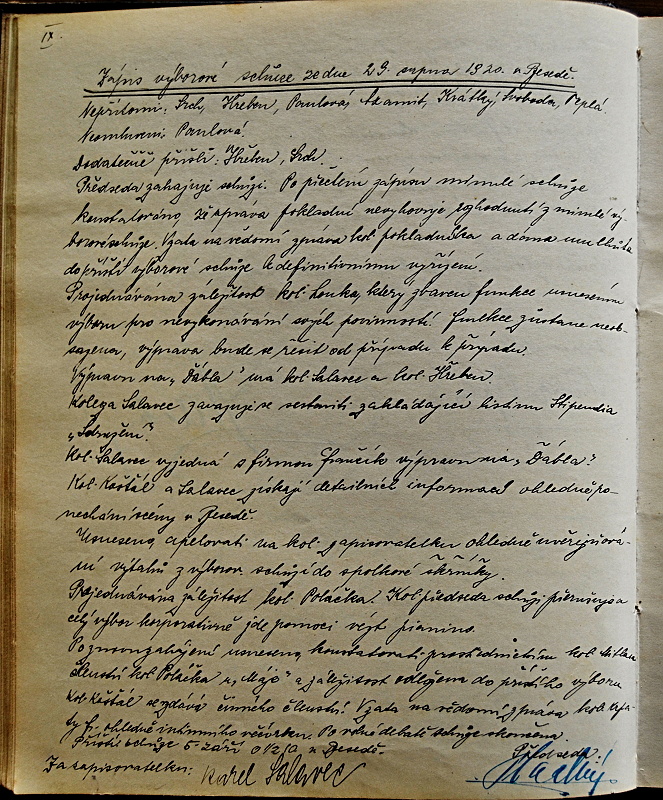 IX.
Zápis výborové schůze ze dne 29. srpna 1920. v Besedě.
Nepřítomni: Srch, Hřeben, Pavlová, Adamit, Krátký, Svoboda, Peplá.
Neomluveni: Pavlová.
Dodatečně přišli: Hřeben, Srch.
Předseda zahajuje schůzi. Po přečtení zápisu minulé schůze
konstatováno, že zpráva pokladní nevyhovuje rozhodnutí z minulé vý-
borové schůze. Vzata na vědomí zpráva kol. pokladníka a dána mu lhůta
do příští výborové schůze k definitivnímu vyřízení.
Projednávána záležitost kol. Houka, který zbaven funkce usnesením
výboru pro nevykonávání svých povinností. Funkce zůstane neob-
sazena, výprava bude se řešit od případu k případu.
Výpravu na „Ďábla" má kol. Salavec a kol. Hřeben.
Kolega Salavec zavazuje se sestaviti zakládající listinu Stipendia
„Sdružení".
Kol. Salavec vyjedná s firmou Frančík výpravu na „Ďábla".
Kol. Košťál a Salavec získají detailních informací ohledně po-
nechání scény v Besedě.
Usneseno, apelovati na kol. zapisovatelku ohledně uveřejňová-
ní výtahů z výborov. schůzí do spolkové skříňky.
Projednávána záležitost kol. Poláčka. Kol. předseda schůzi přerušuje a
celý výbor korporativně jde pomoci vézt pianino.
Po znovuzahájení usneseno, konstatovati prostřednictvím kol.
členství kol. Poláčka u „Máje" a záležitost odložena do příštího výboru
Kol. Košťál se vzdává činného členství. Vzata na vědomí zpráva kol.
ohledně intimního večírku. Po volné debatě schůze skončena.
Příští schůze 5. září v Besedě.
Předseda:
Za zapisovatelku: Karel Salavec